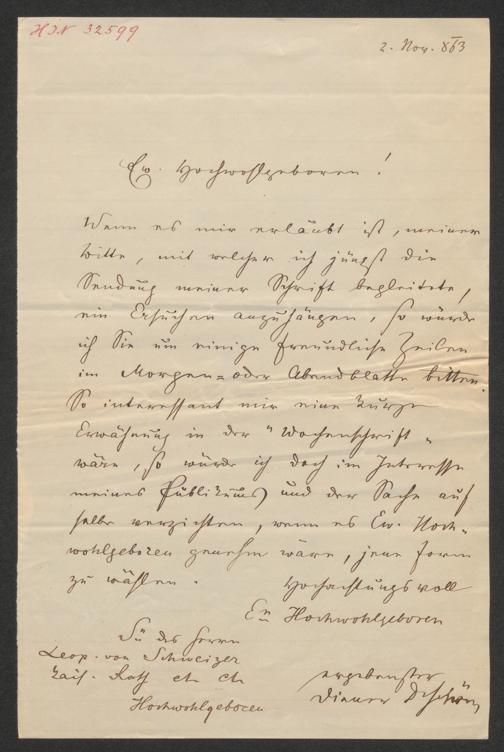 H.I.N 32599
2. Nov. 863
Ew. Hochwohlgeboren!
Wenn es mir erlaubt ist, meiner
Bitte, mit welcher ich jüngst die
Sendung meiner Schrift begleitete,
ein Ersuchen anzuhängen, so würde
ich Sie um einige freundliche Zeilen
im Morgen= oder Abendblatte bitten.
So interessant mir eine kurze
Erwähnung in der "Wochenschrift"
wäre, so würde ich doch im Interesse
meines Publikums und der Sache auf
selbe verzichten, wenn es Ew. Hoch-
wohlgeboren genehm wäre, jene Form
zu wählen.
Hochachtungsvoll
Eu Hochwohlgeboren
des Herrn
Leop. von Schweizer
kais. Rath etc etc
Hochwohlgeboren
ergebenster
Diener